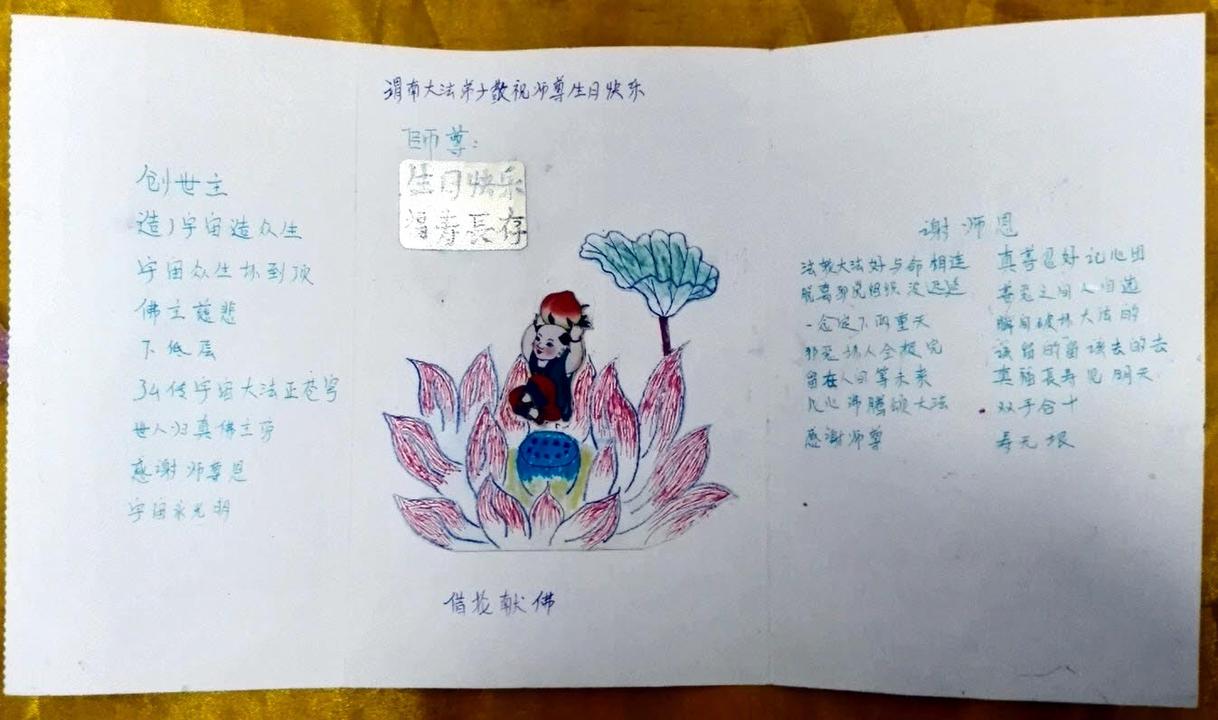 渭南大法弟子敬祝师尊生日快乐
師尊：
生日快乐
福寿長存
创世主
造宇宙造众生
宇宙众生坏到顶
佛主慈悲
下低层
弘传宇宙大法正苍穹
世人归真佛主旁
感谢师尊恩
宇宙永光明
借花献佛
谢师恩
法轮大法好与命相连
脱离邪党组织没迟延
一念定下两重天
邪恶坏人全
留在人间等未来
心沸腾颂大法
感谢师尊
真善忍好记心田
善恶之间人自选
瞬间破坏大法的
该留的留该去的去
真福長寿见明天
双手合十
寿无垠